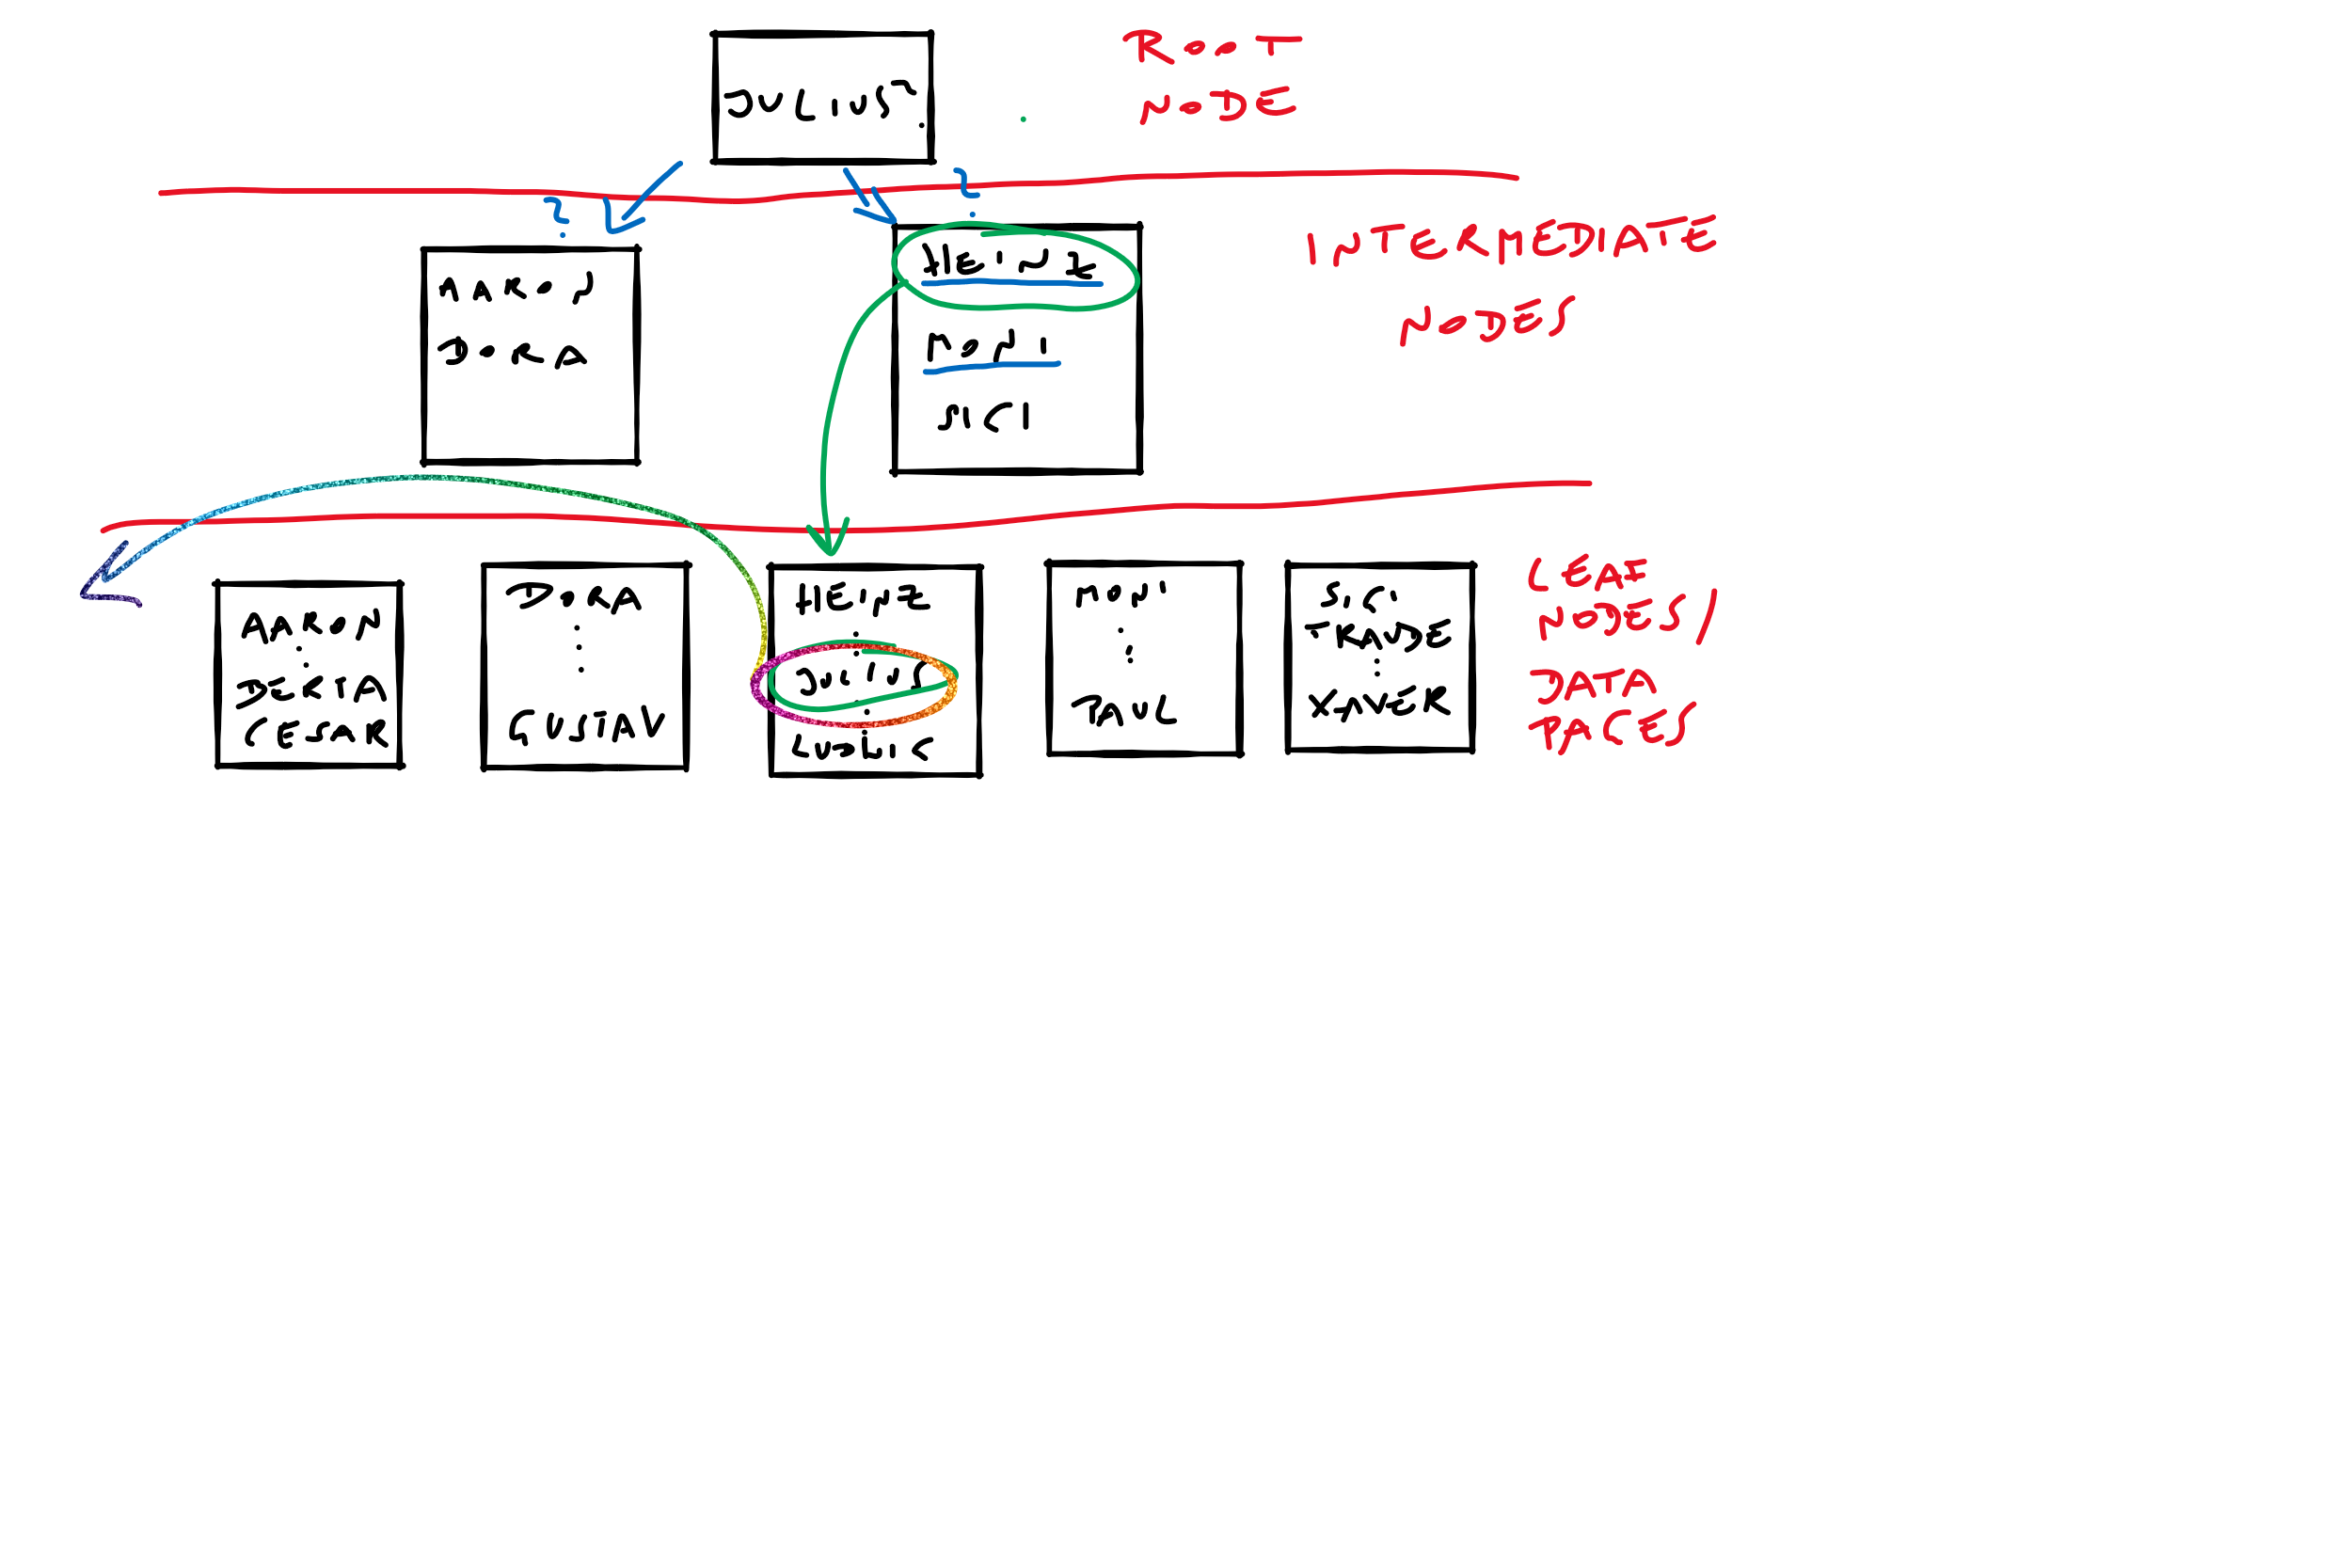 JULIUS
ROOT
NODE
?
?
AARON
DORA
HEINZ
MONI
SICI
INTERMEDIATE
NODES
AARON
BERTA
CESAR
DORA
GUSTAV
HEINZ
JULIUS
LUDWIG
MONI
PAUL
SICI
TRUDE
XAVER
LEAF
NODES/
DATA
PAGES